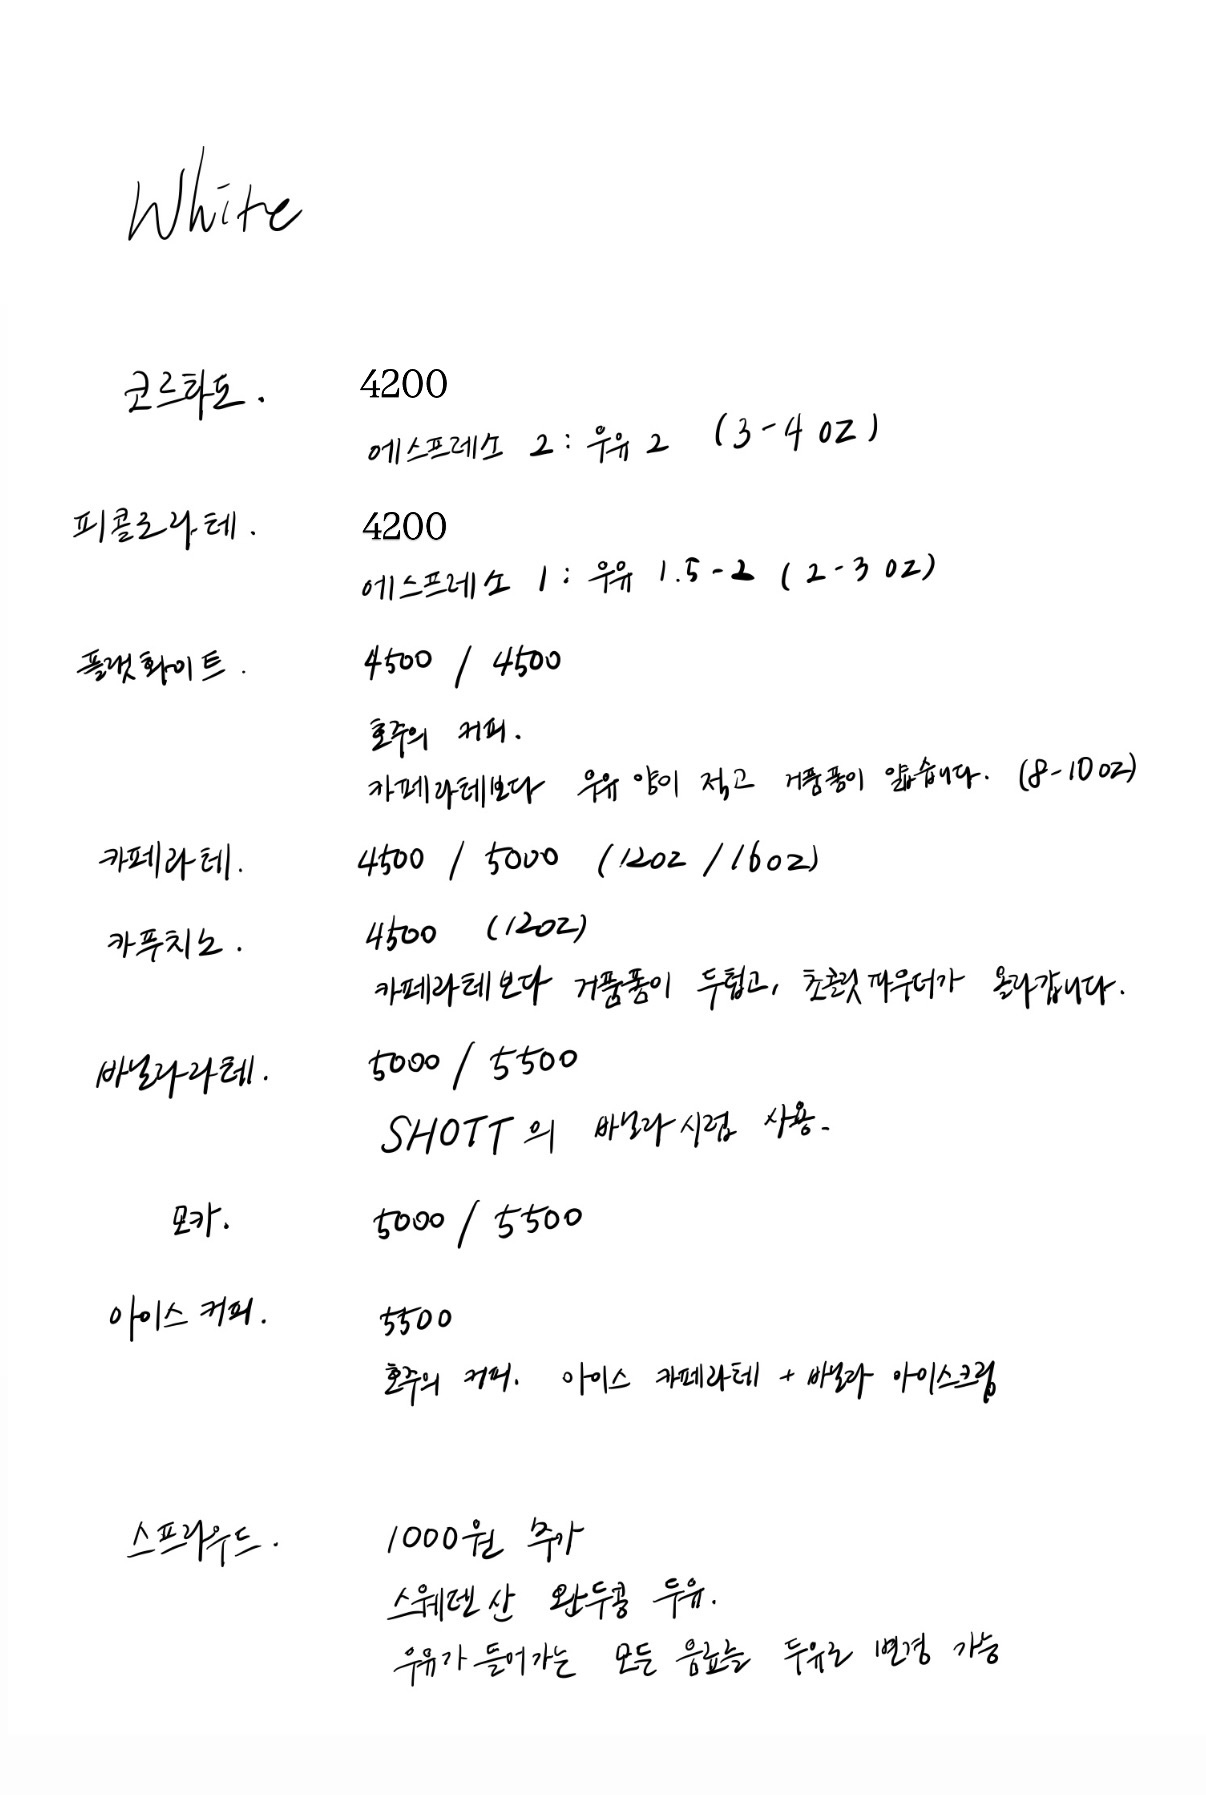 White
코르타도. 4200
에스프레소 2 : 우유 2 (3-4 oz)
피콜로라테. 4200
에스프레소 1 : 우유 1.5-2 (2-3 oz)
플랫화이트. 4500 / 4500
호주의 커피.
카페라테보다 우유 양이 적고 거품층이 얇습니다. (8-10 oz)
카페라테. 4500 / 5000 (12oz / 16oz)
카푸치노. 4500 (12oz)
카페라테보다 거품층이 두텁고, 초콜릿 파우더가 올라갑니다.
바닐라라테. 5000 / 5500
SHOTT의 바닐라시럽 사용.
모카. 5000 / 5500
아이스 커피. 5500
호주의 커피. 아이스 카페라테 + 바닐라 아이스크림
스프라우드. 1000원 추가
스웨덴산 완두콩 두유.
우유가 들어가는 모든 음료는 두유로 변경 가능